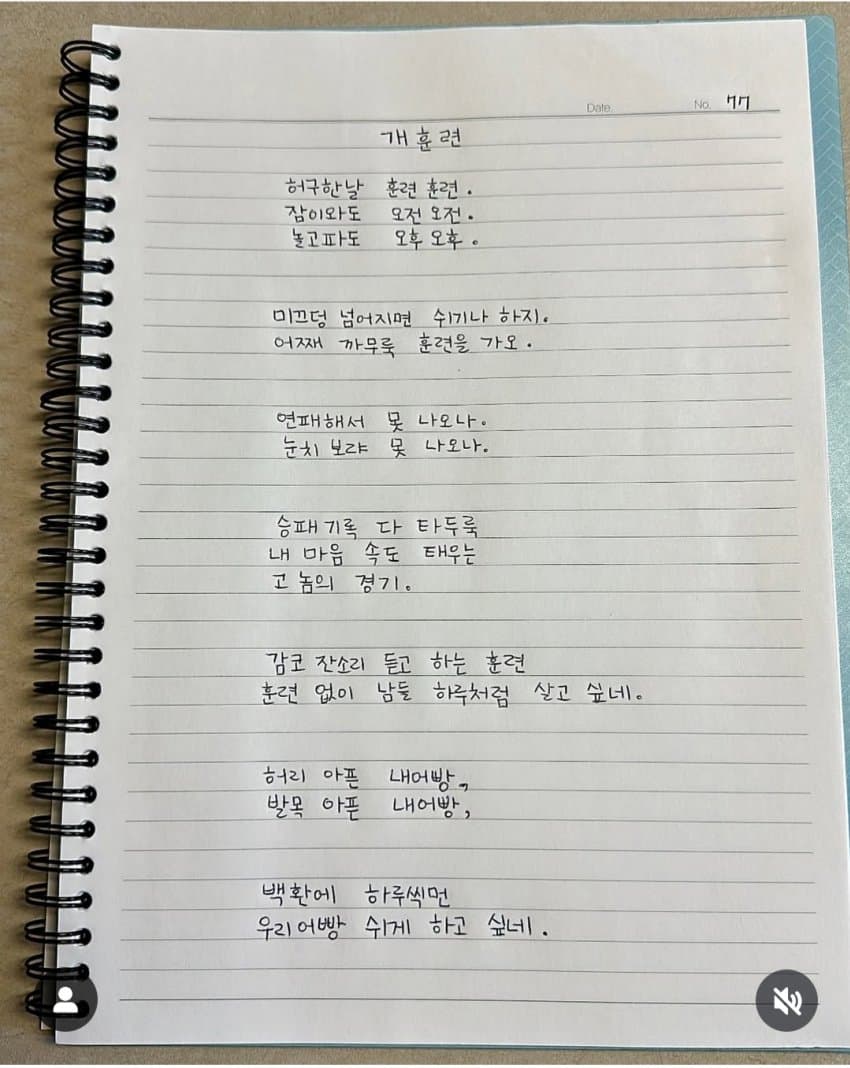 Date.
No. 77
개훈련
허구한날 훈련 훈련.
잠이와도 오전 오전.
놀고파도 오후 오후.
미끄덩 넘어지면 쉬기나 하지.
어쩨 까무룩 훈련을 가오.
연패해서 못 나오나.
눈치 보랴 못 나오나.
승패기록 다 타두룩
내 마음 속도 태우는
고 놈의 경기.
감코 잔소리 듣고 하는 훈련
훈련 없이 남들 하루처럼 살고 싶네.
허리 아픈 내어빵,
발목 아픈 내어빵,
백환에 하루씩먼
우리어빵 쉬게 하고 싶네.